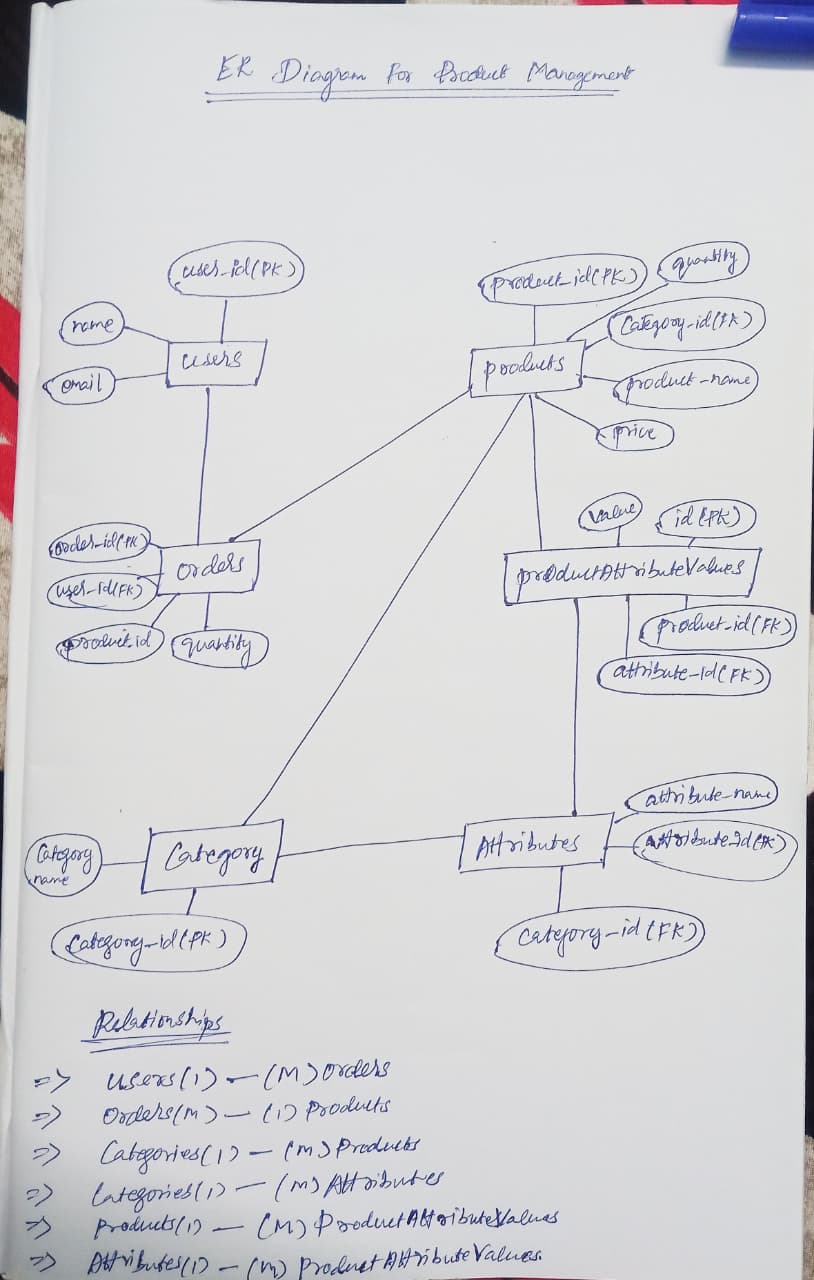 ER Diagram For Product Management
user_id(PK)
name
users
email
product_id(PK)
quantity
Category-id(FK)
products
product-name
price
order-id(PK)
user-id(FK)
orders
product.id
quantity
value
id(PK)
productAttributeValues
product-id(FK)
attribute-Id(FK)
attribute-name
Attributes
Category
name
Category
Category-id(PK)
Category-id(FK)
Relationships
=> users(1) – (M) orders
=> Orders(M) – (1) products
=> Categories(1) – (M) Products
=> Categories(1) – (M) Attributes
=> Products(1) – (M) ProductAttributeValues
=> Attributes(1) – (M) ProductAttributeValues.